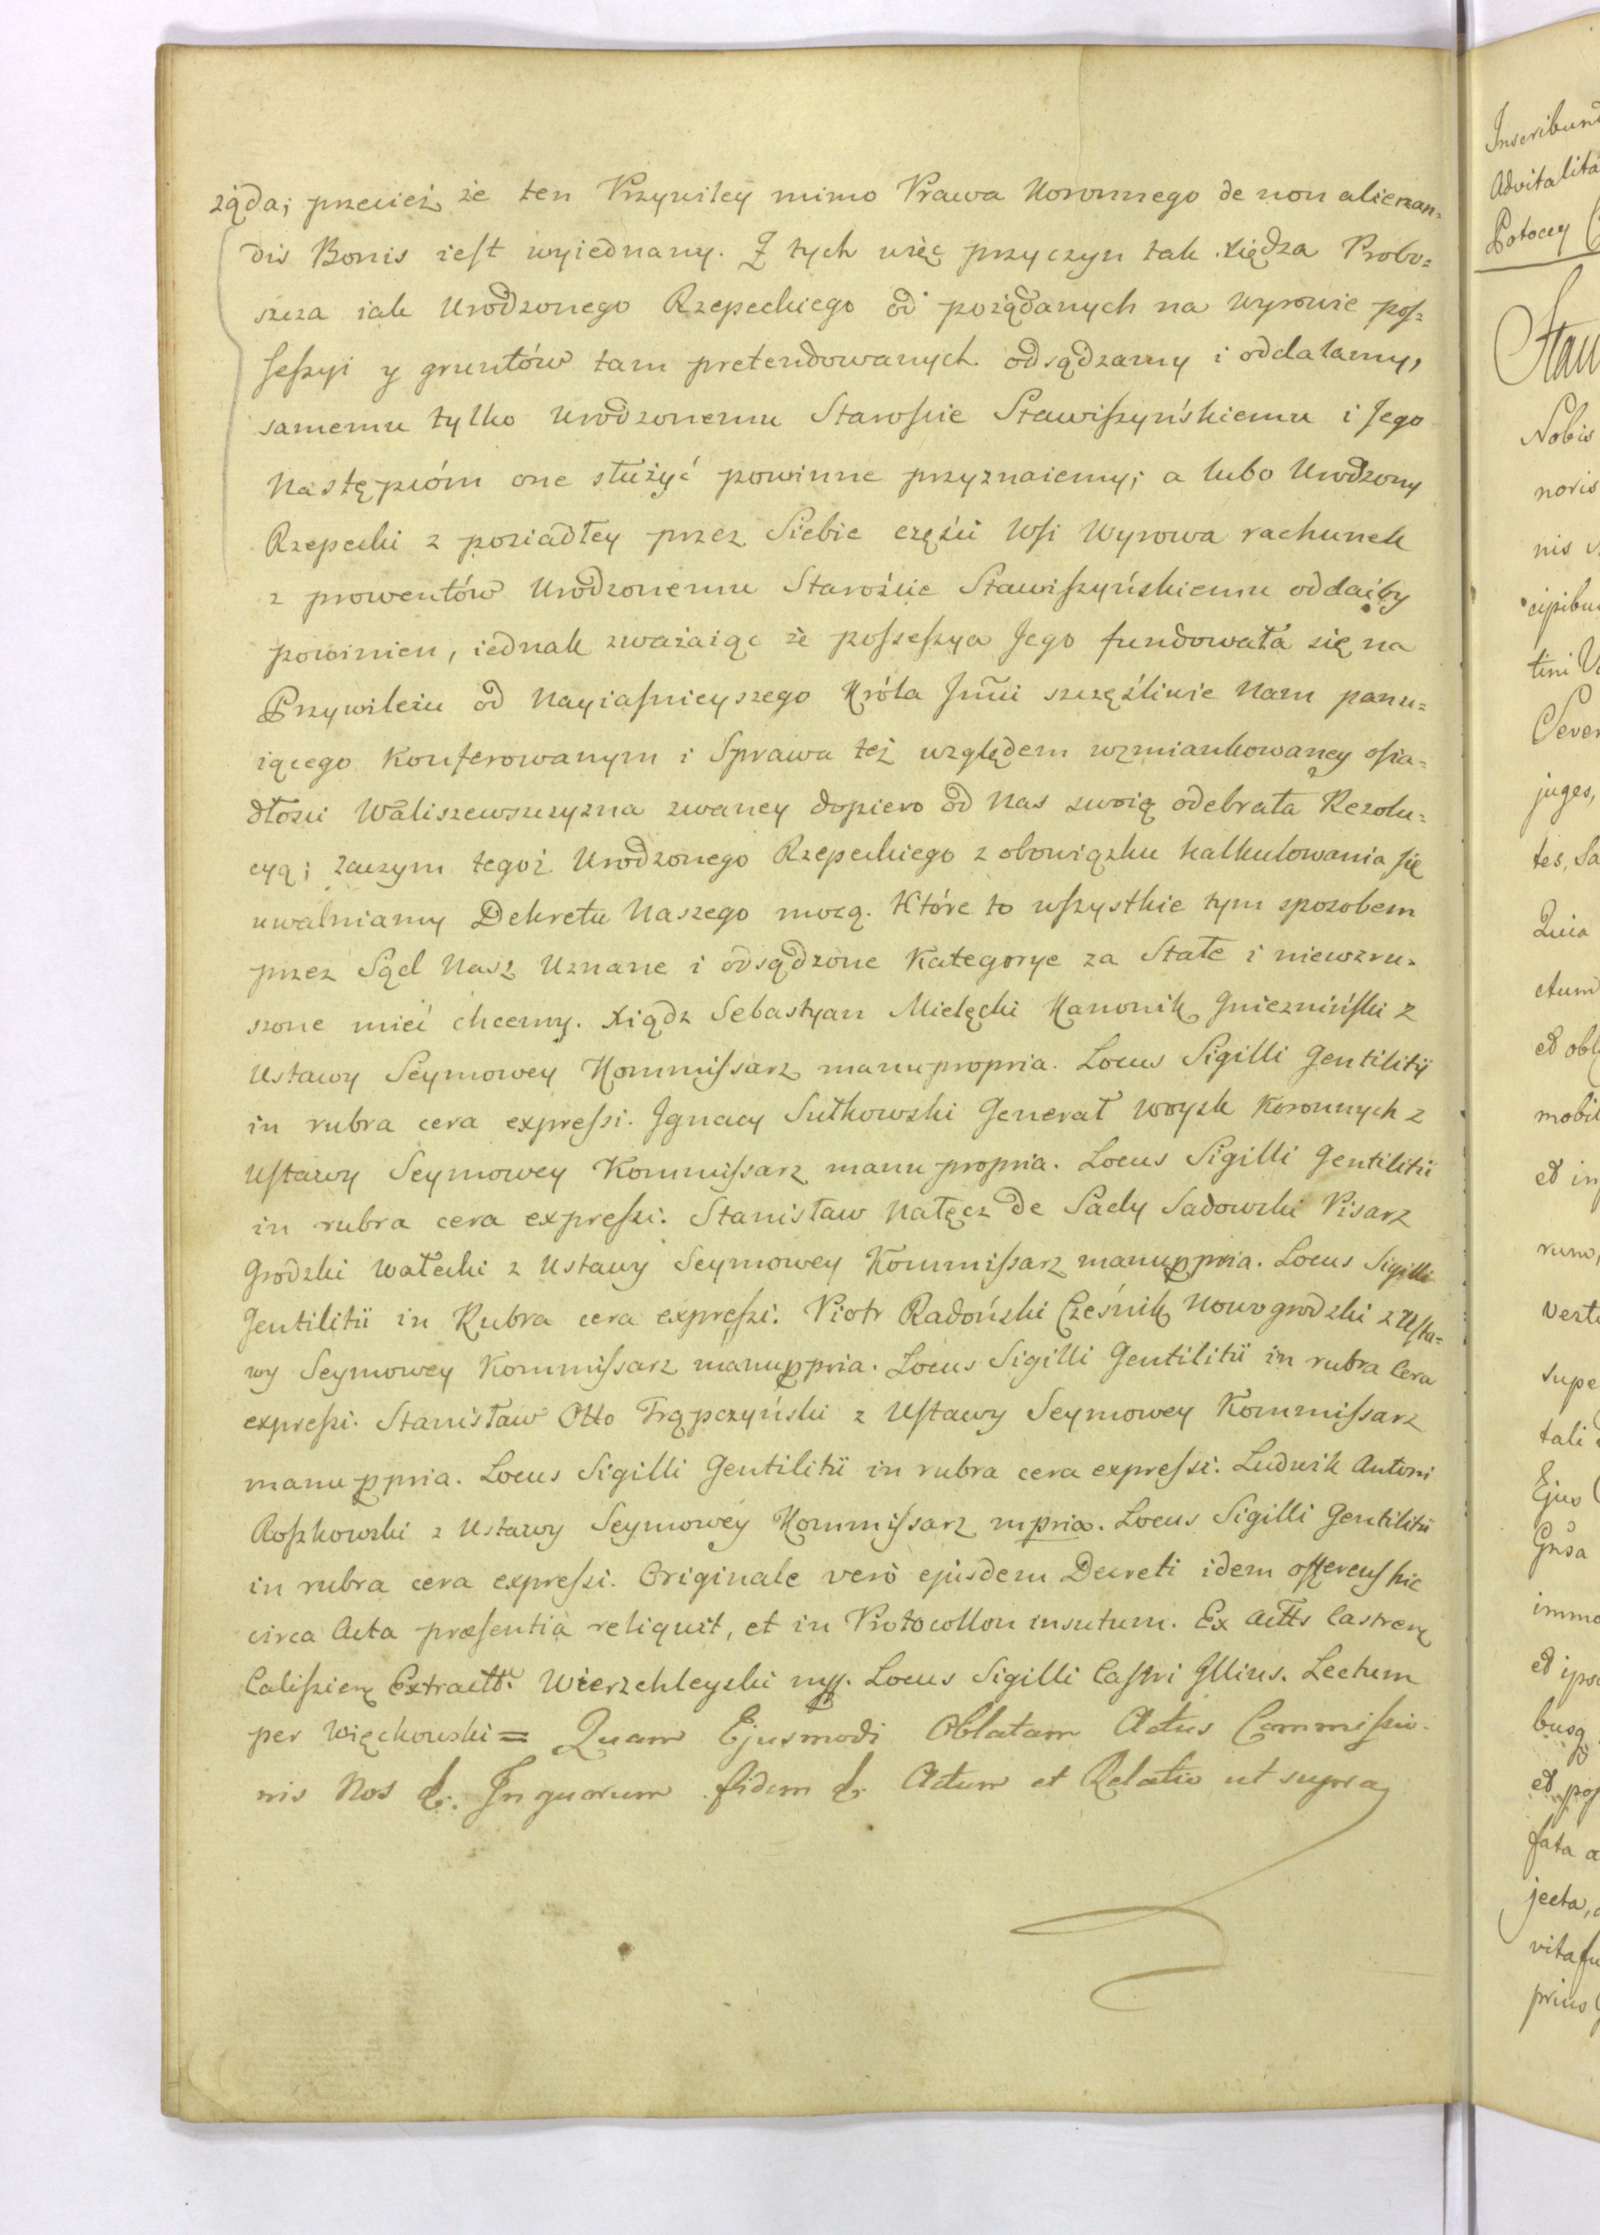 żąda; przecież że ten Przywiley mimo Prawa Koronnego de non alienan-
dis Bonis iest wyiednany. Z tych więc przyczyn tak Xiędza Probo-
szcza iak Urodzonego Rzepeckiego od pożądanych na Wyrowie pos-
sessyi y gruntów tam pretendowanych odsądzamy i oddalamy,
samemu tylko Urodzonemu Staroście Stawiszyńskiemu i Jego
Następcóm one służyć powinne przyznaiemy; a lubo Urodzony
Rzepecki z posiadłey przez Siebie części Wsi Wyrowa rachunek
z prowentów Urodzonemu Starościie Stawiszyńskiemu oddaćby
powinien, iednak zważaiąc że possessya Jego fundowała się na
Przywileiu od Nayiaśnieyszego Króla Jmci szczęśliwie Nam panu-
iącego Konferowanym i Sprawa też względem wzmiankowaney osia-
dłości Waliszewszczyzna zwaney dopiero od Nas swoią odebrała Rezolu-
cyą; zaczym tegoż Urodzonego Rzepeckiego z obowiązku kalkulowania się
uwalniamy Dekretu Naszego mocą. Które to wszystkie tym sposobem
przez Sąd Nasz Uznane i odsądzone Kategorye za Stałe i niewzru-
szone mieć chcemy. Xiądz Sebastyan Mielęcki Kanonik Gniezniński z
Ustawy Seymowey Kommissarz manu propria. Locus Sigilli Gentilitii
in rubra cera expressi. Ignacy Sułkowski Generał Woysk Koronnych z
Ustawy Seymowey Kommissarz manu propria. Locus Sigilli Gentilitii
in rubra cera expressi. Stanisław Nałęcz de Sady Sadowski Pisarz
Grodzki Wałecki z Ustawy Seymowey Kommissarz manu ppria. Locus Sigilli
Gentilitii in Rubra cera expressi. Piotr Radoński Cześnik Nowogrodzki z Usta-
wy Seymowey Kommissarz manu ppria. Locus Sigilli Gentilitii in rubra Cera
expressi. Stanisław Otto Trąpczyński z Ustawy Seymowey Kommissarz
manu ppria. Locus Sigilli Gentilitii in rubra cera expressi. Ludwik Antoni
Roszkowski z Ustawy Seymowey Kommissarz mpria. Locus Sigilli Gentilitii
in rubra cera expressi. Originale verò ejusdem Decreti idem offerens hic
circa Acta præsentia reliquit, et in Protocollon insutum. Ex Actts Castren
Calissien Extractt. Wierzchleyski mp. Locus Sigilli Castri Gllius. Lectum
per Więckowski = Quam Ejusmodi Oblatam Actus Commissio-
nis Nos &. In quorum fidem &. Actum et Relatio ut supra
Inscribun
Advitalita
Potocey
Stan
Nobis
noris
nis
cipibu
tini
Sever
juges,
tes, Sa
Quia
ctum
et obl
mobil
et in
rum,
vert
supe
tali
Ejus
Gnsa
immo
et ipso
busq
et pos
fata a
jecta,
vita fu
prius